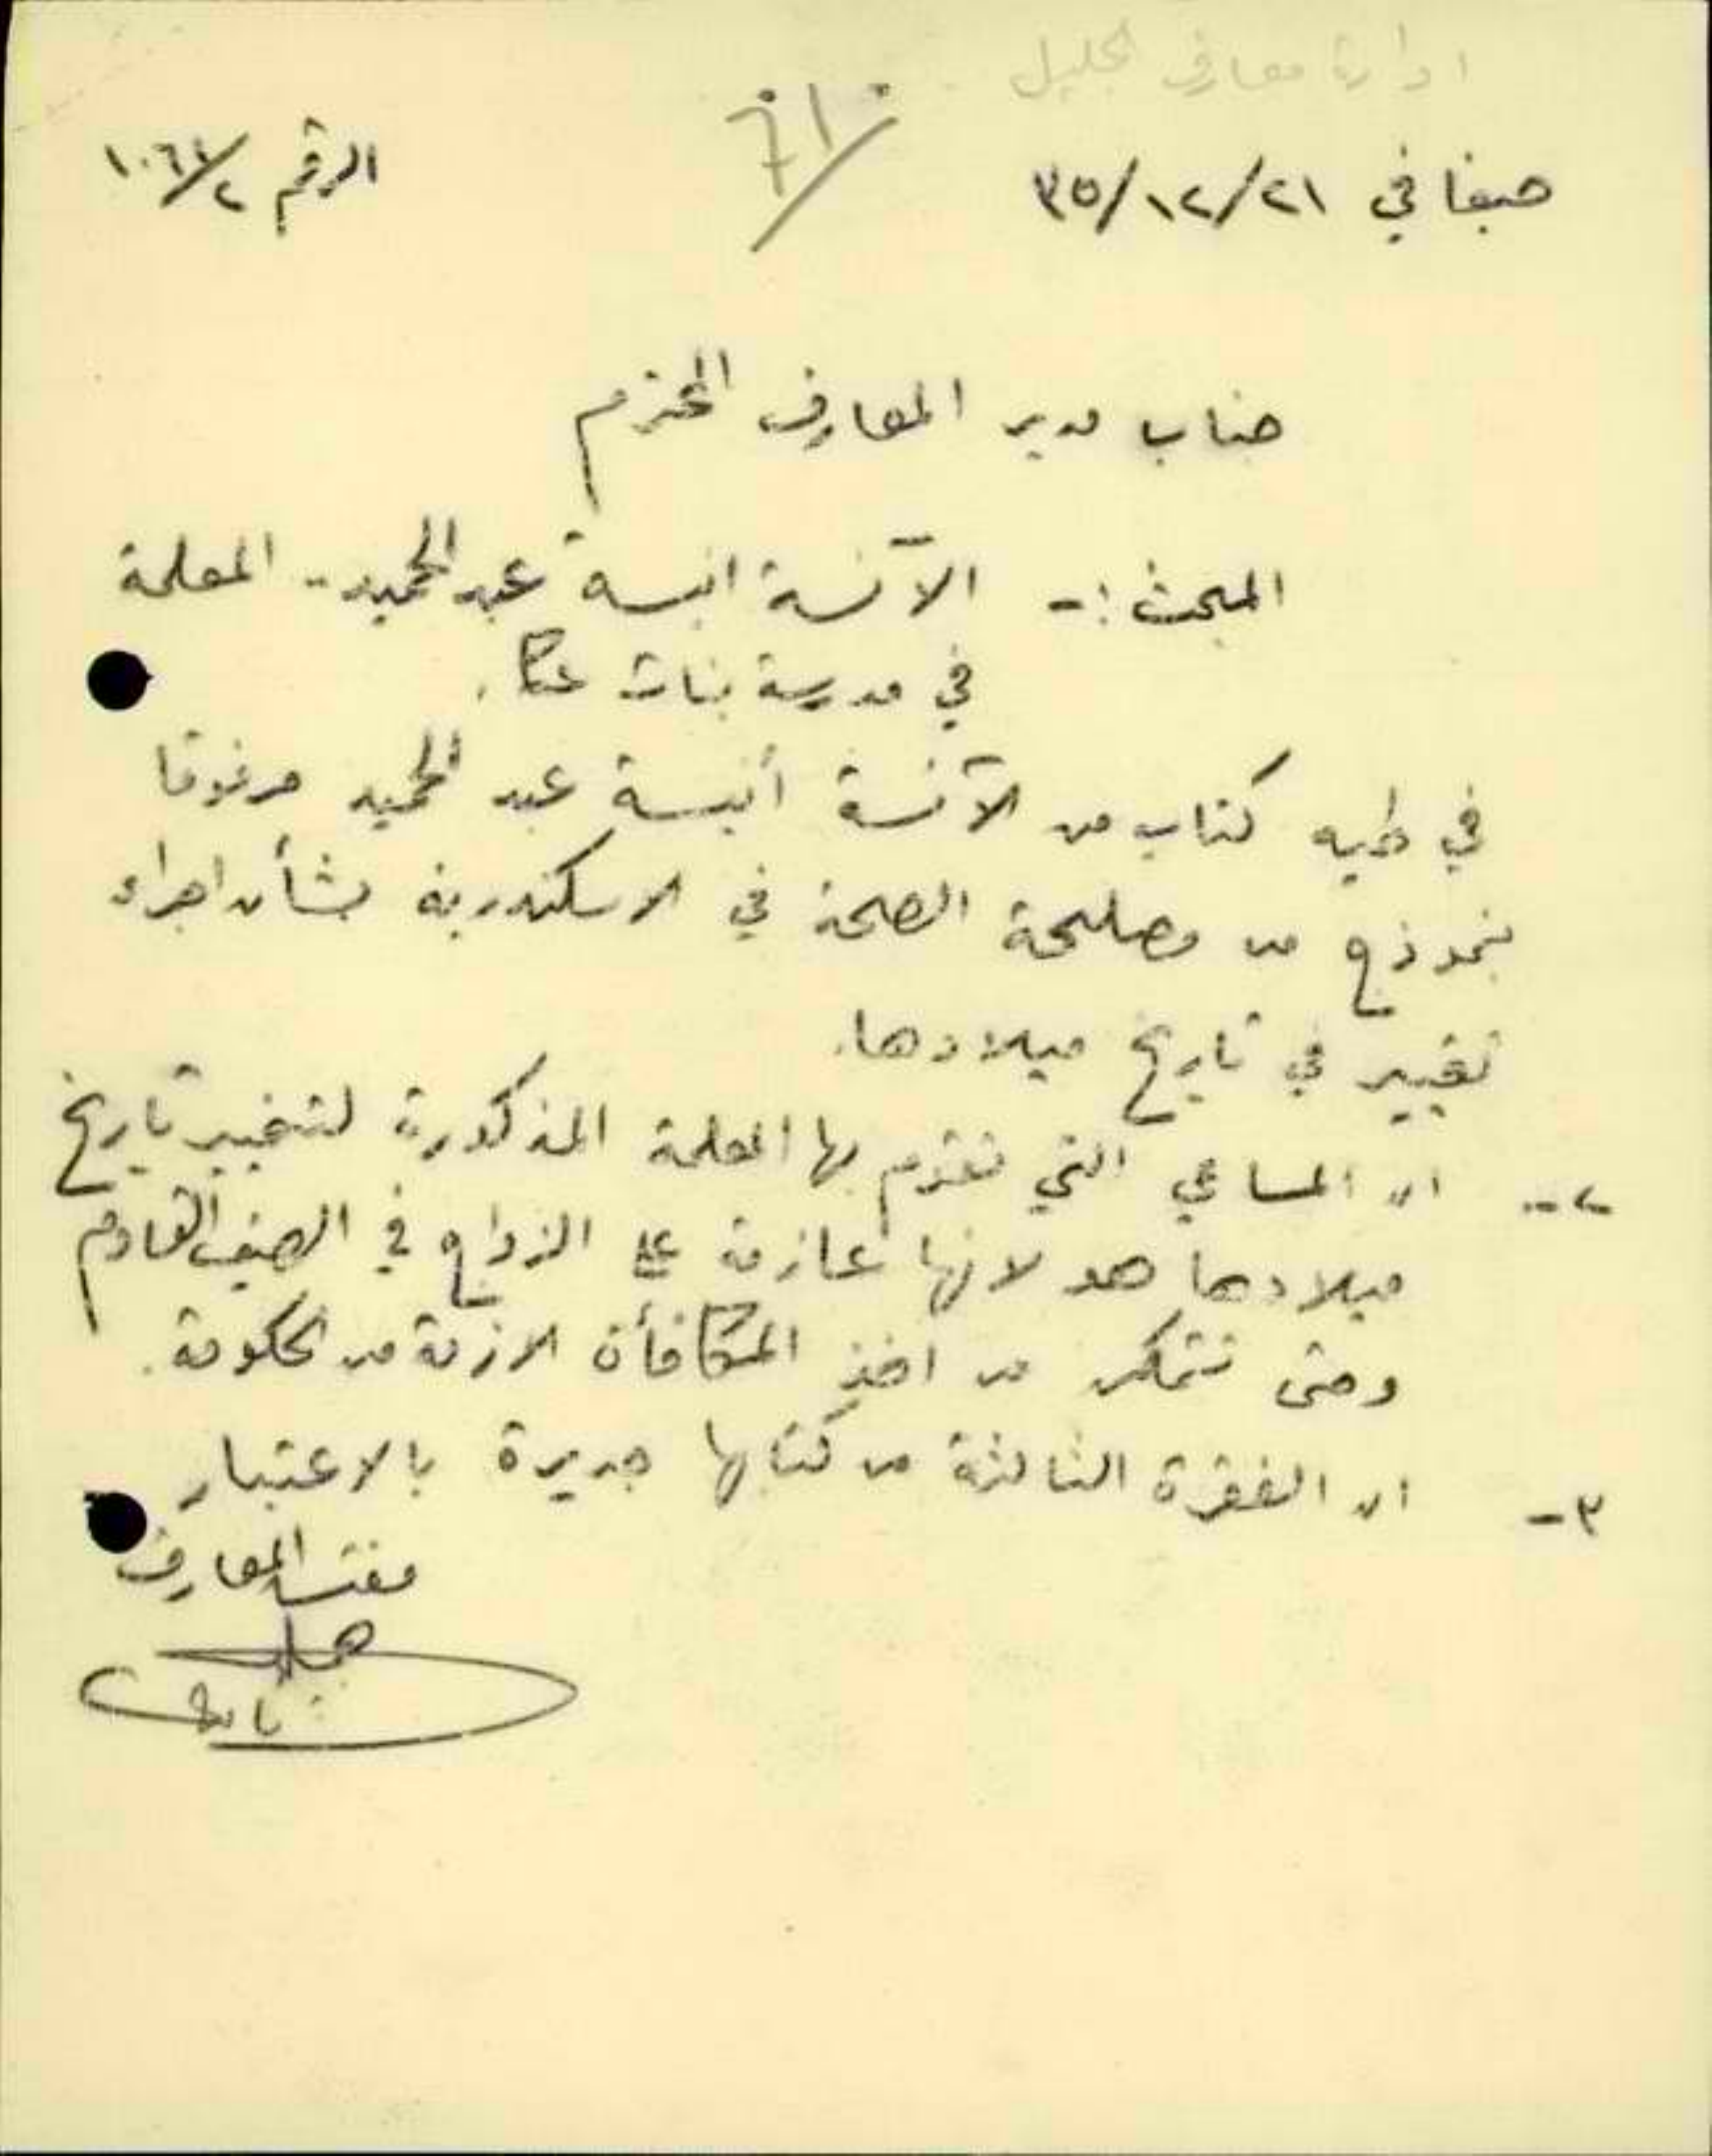 ادارة معارف الجليل
حيفا في ٢١/١٢/٣٥
الرقم
جناب مدير المعارف المحترم
المبحث :- الآنسة انيسة عبد الحميد - المعلمة
في مدرسة بنات عكا .
في طيه كتاب من الآنسة أنيسة عبد الحميد مرفوقا
بنموذج من مصلحة الصحة في الاسكندرية بشأن اجراء
تغيير في تاريخ ميلادها .
٢- ان المساعي التي تقوم بها المعلمة المذكورة لتغيير تاريخ
ميلادها هو لانها عازمة على الزواج في الصيف القادم
وحتى تتمكن من اخذ المكافأة الازمة من الحكومة .
٣- ان الفقرة الثالثة من كتابها جديرة بالاعتبار
مفتش المعارف